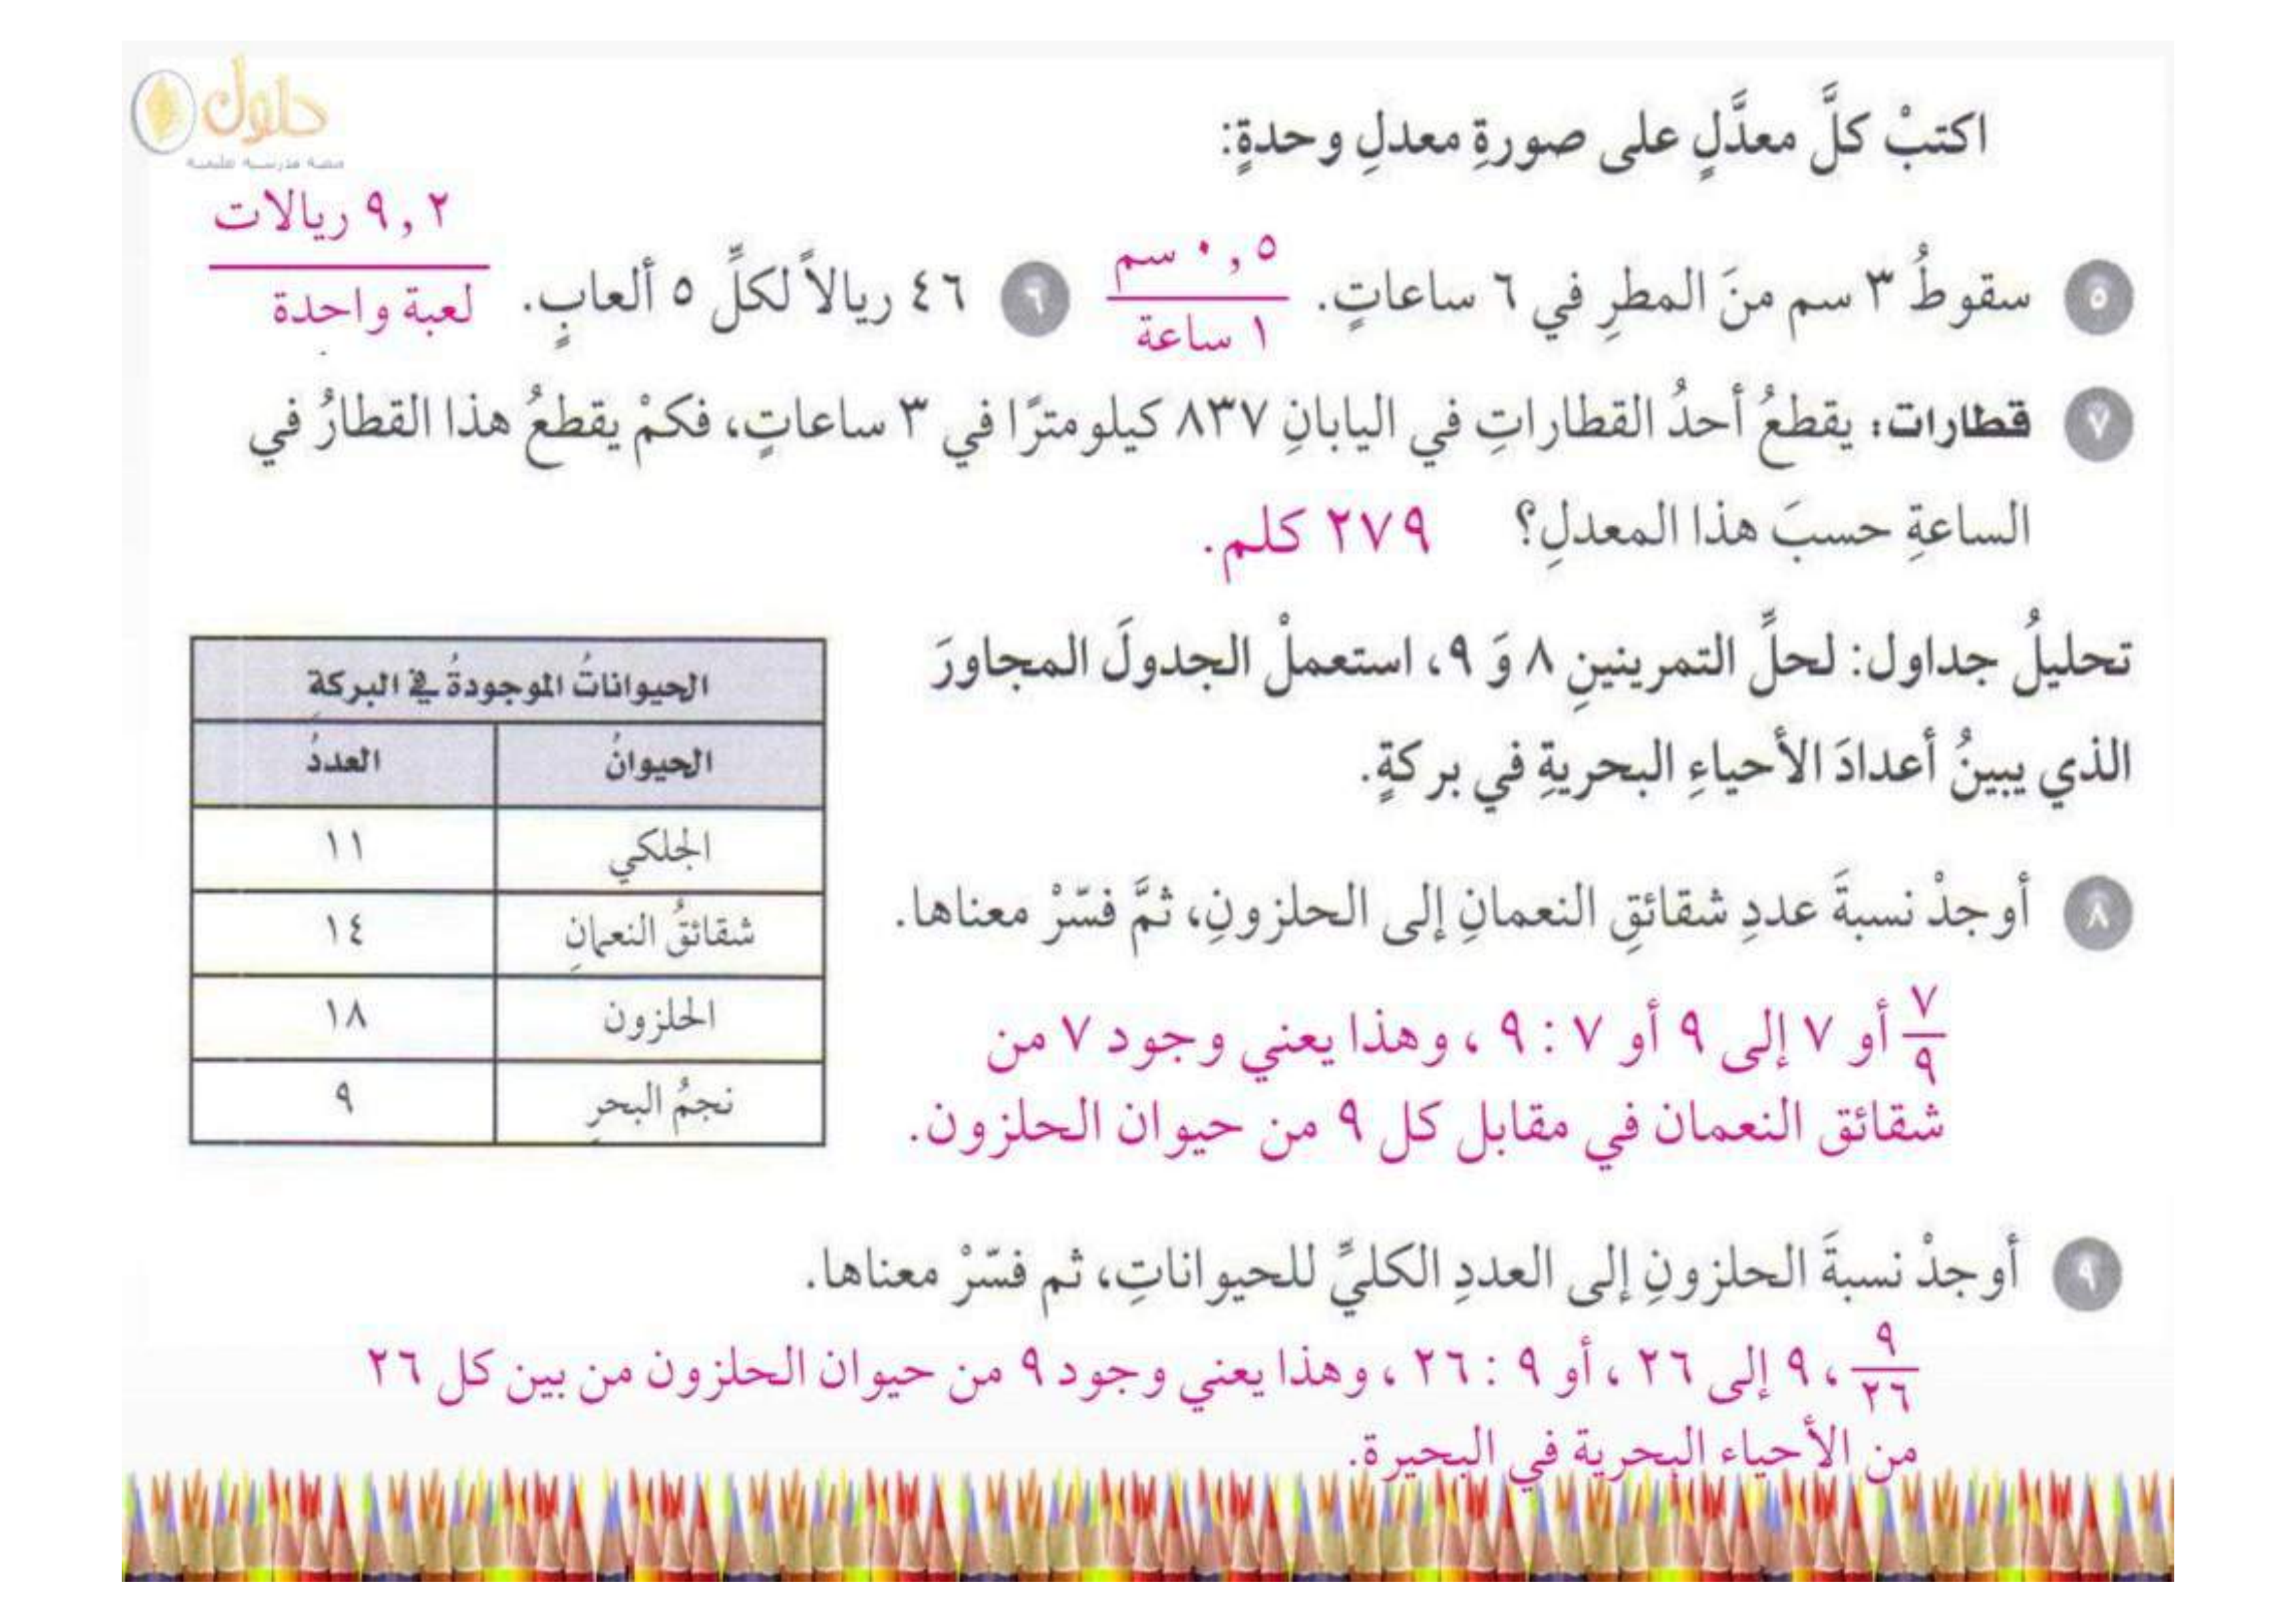 حلول
اكتبْ كلَّ معدَّلٍ على صورةِ معدلِ وحدةٍ:
٥ سقوطُ ٣ سم منَ المطرِ في ٦ ساعاتٍ. ٠,٥ سم
١ ساعة
٦ ٤٦ ريالاً لكلِّ ٥ ألعابٍ. ٩,٢ ريالات
لعبة واحدة
٧ قطارات: يقطعُ أحدُ القطاراتِ في اليابانِ ٨٣٧ كيلومترًا في ٣ ساعاتٍ، فكمْ يقطعُ هذا القطارُ في
الساعةِ حسبَ هذا المعدلِ؟ ٢٧٩ كلم.
تحليلُ جداول: لحلِّ التمرينينِ ٨ وَ ٩، استعملْ الجدولَ المجاورَ
الذي يبينُ أعدادَ الأحياءِ البحريةِ في بركةٍ.
الحيواناتُ الموجودةُ في البركةِ
الحيوانُ العددُ
الجلكي ١١
شقائقُ النعمانِ ١٤
الحلزون ١٨
نجمُ البحرِ ٩
٨ أوجدْ نسبةَ عددِ شقائقِ النعمانِ إلى الحلزونِ، ثمَّ فسّرْ معناها.
٧/٩ أو ٧ إلى ٩ أو ٧ : ٩ ، وهذا يعني وجود ٧ من
شقائق النعمان في مقابل كل ٩ من حيوان الحلزون.
٩ أوجدْ نسبةَ الحلزونِ إلى العددِ الكليِّ للحيواناتِ، ثم فسّرْ معناها.
٩/٢٦ ، ٩ إلى ٢٦ ، أو ٩ : ٢٦ ، وهذا يعني وجود ٩ من حيوان الحلزون من بين كل ٢٦
من الأحياء البحرية في البحيرة.